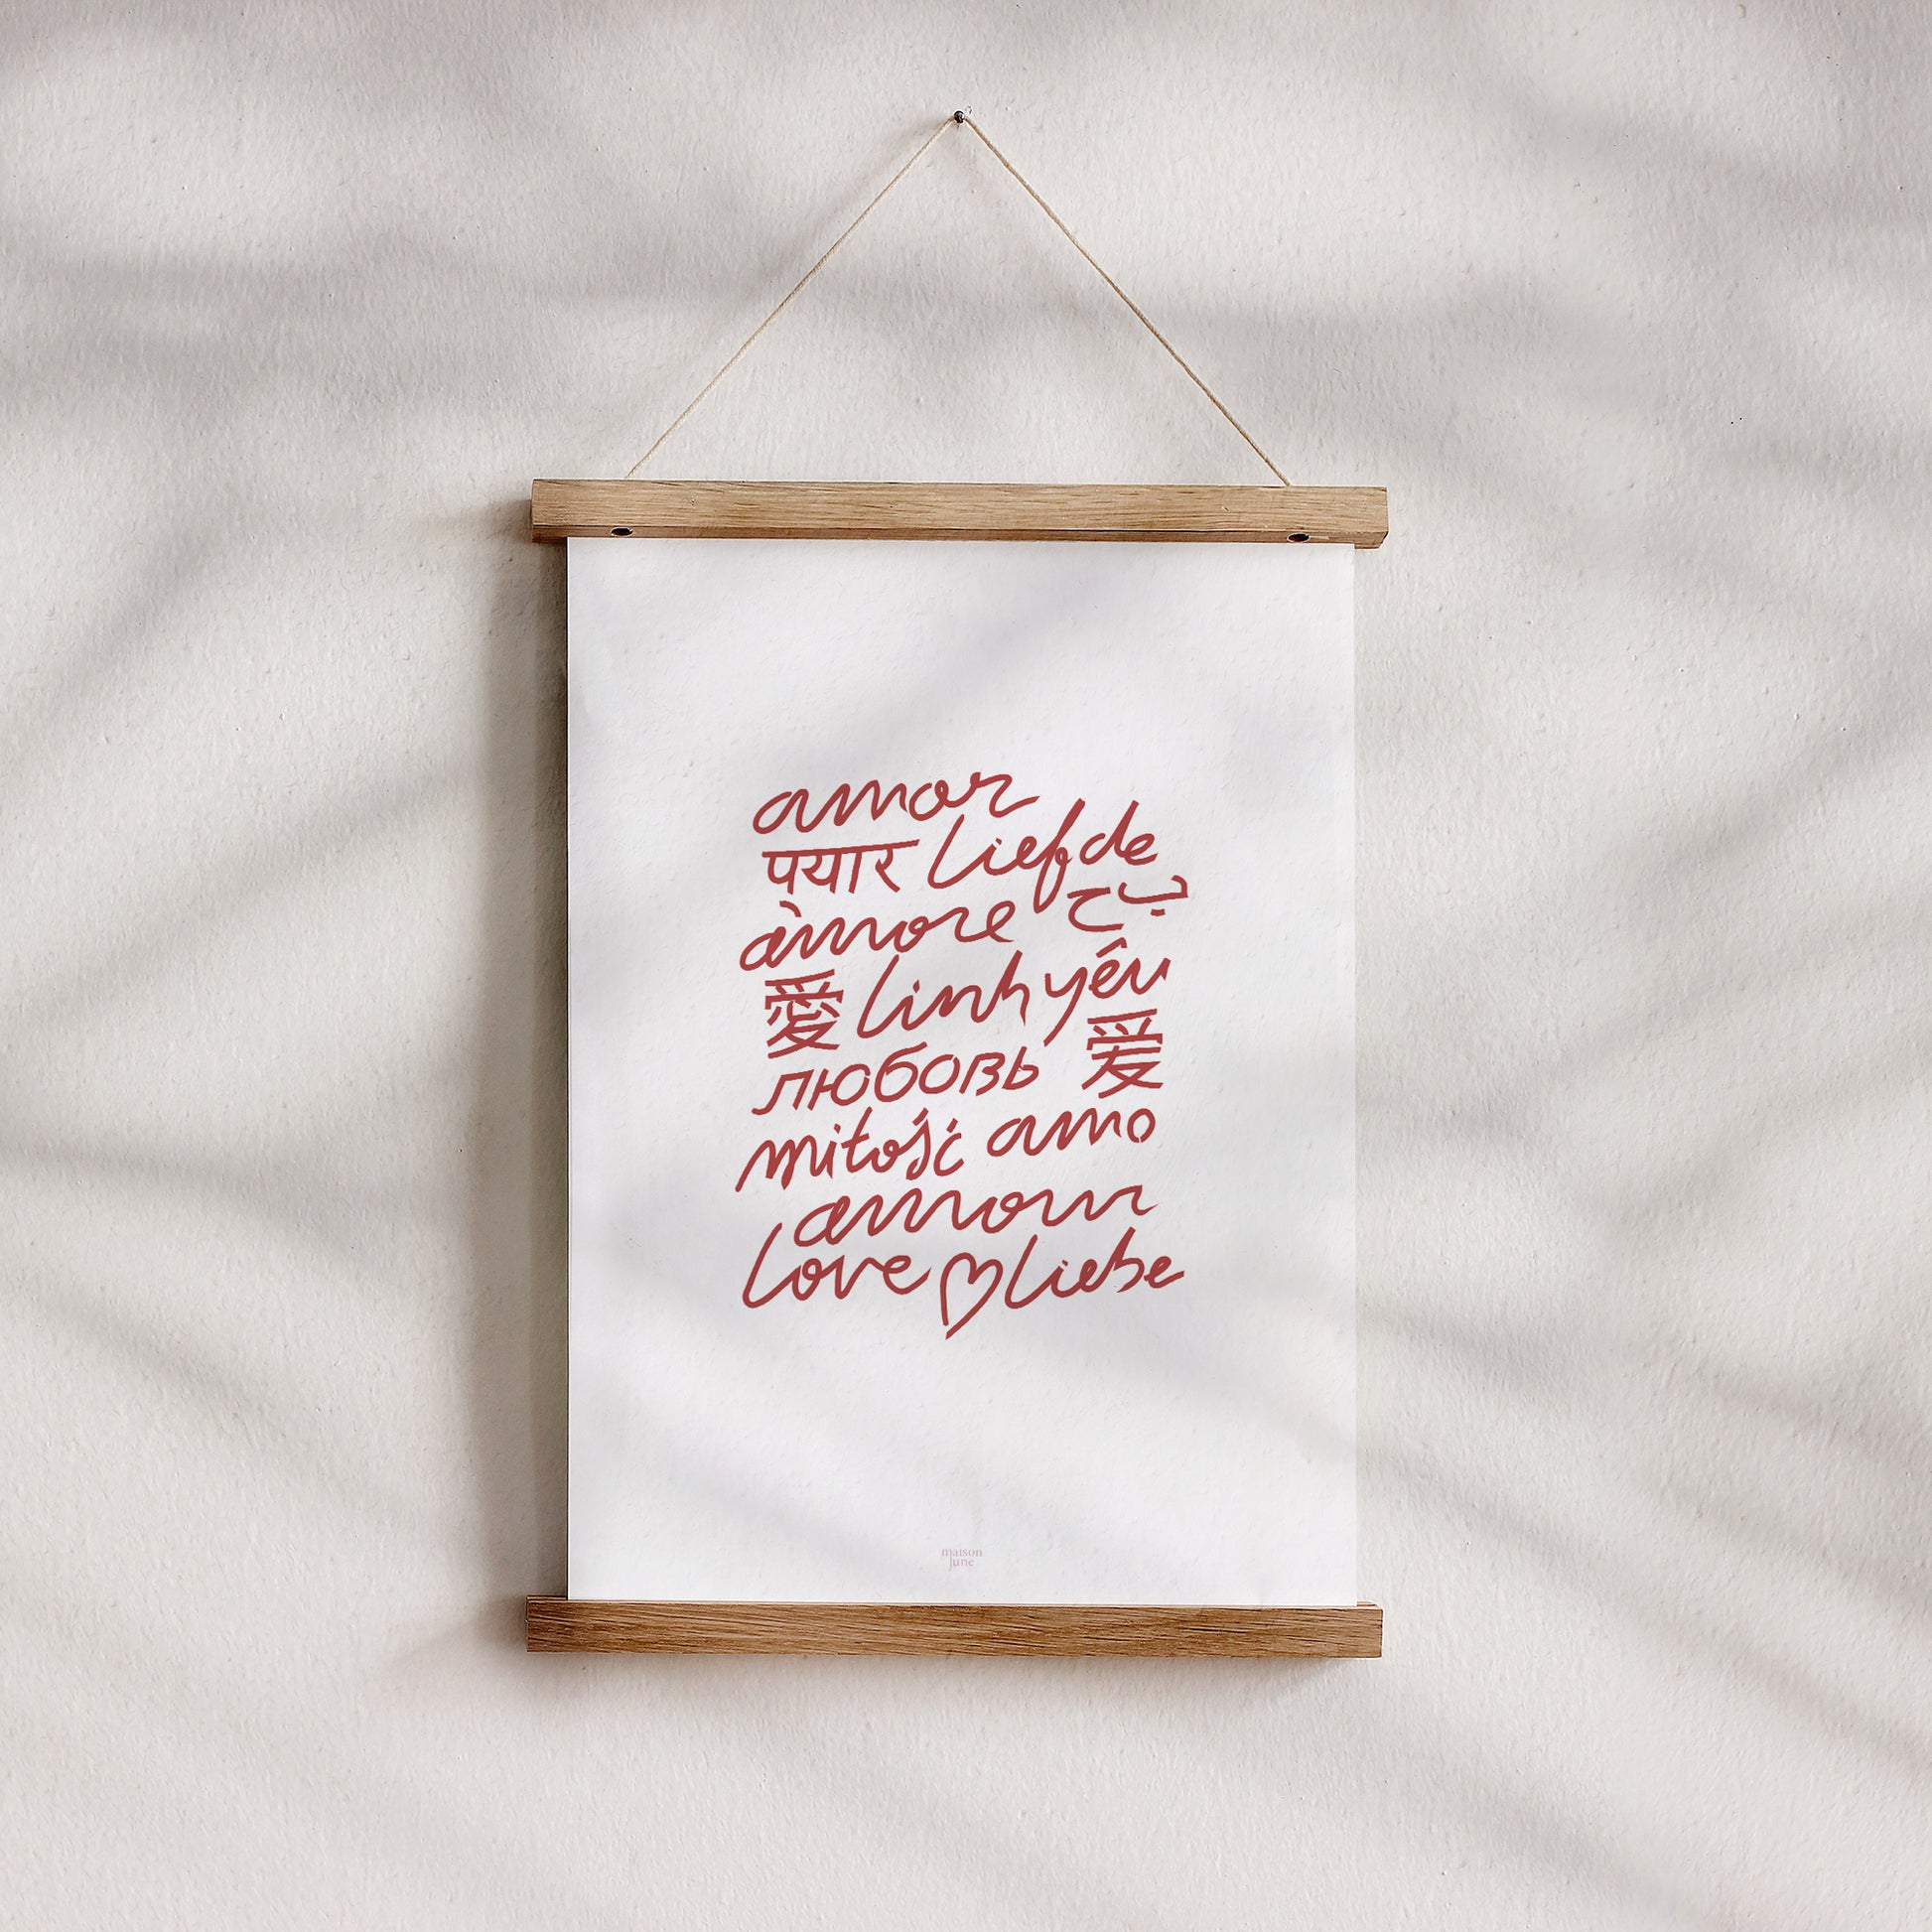 amor
पयार liefde
àmore ب ح
愛 linh yêu
любовь 爱
miłość amo
amour
love ♡ liebe
maison
June